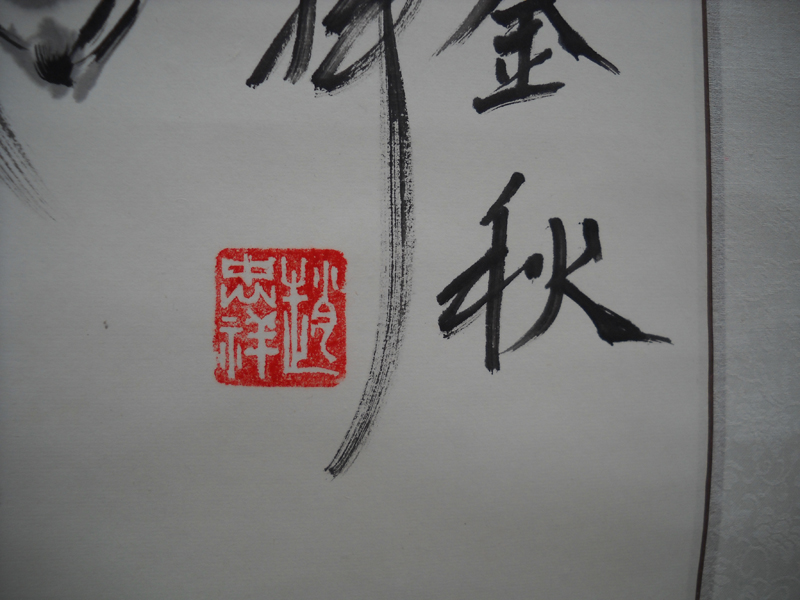 金秋
祥
趙忠祥